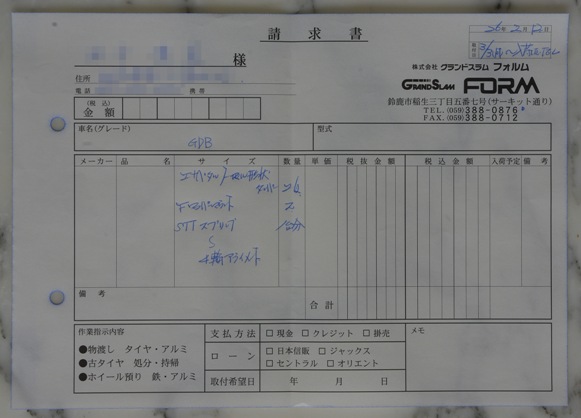 請求書
26年 2月 12日
様
住所
電話 携帯
株式会社 グランドスラム フォルム
GRANDSLAM FORM
鈴鹿市稲生三丁目五番七号(サーキット通り)
TEL. (059)388-0876
FAX. (059)388-0712
(税込)
金額
車名(グレード) 型式
GDB
メーカー 品名 サイズ 数量 単価 税抜金額 税込金額 入荷予定 備考
2
STI スプリング 1台分
4輪アライメント
備考
合計
作業指示内容
●物渡し タイヤ・アルミ
●古タイヤ 処分・持帰
●ホイール預り 鉄・アルミ
支払方法 □現金 □クレジット □掛売
ローン □日本信販 □ジャックス
□セントラル □オリエント
取付希望日 年 月 日
メモ